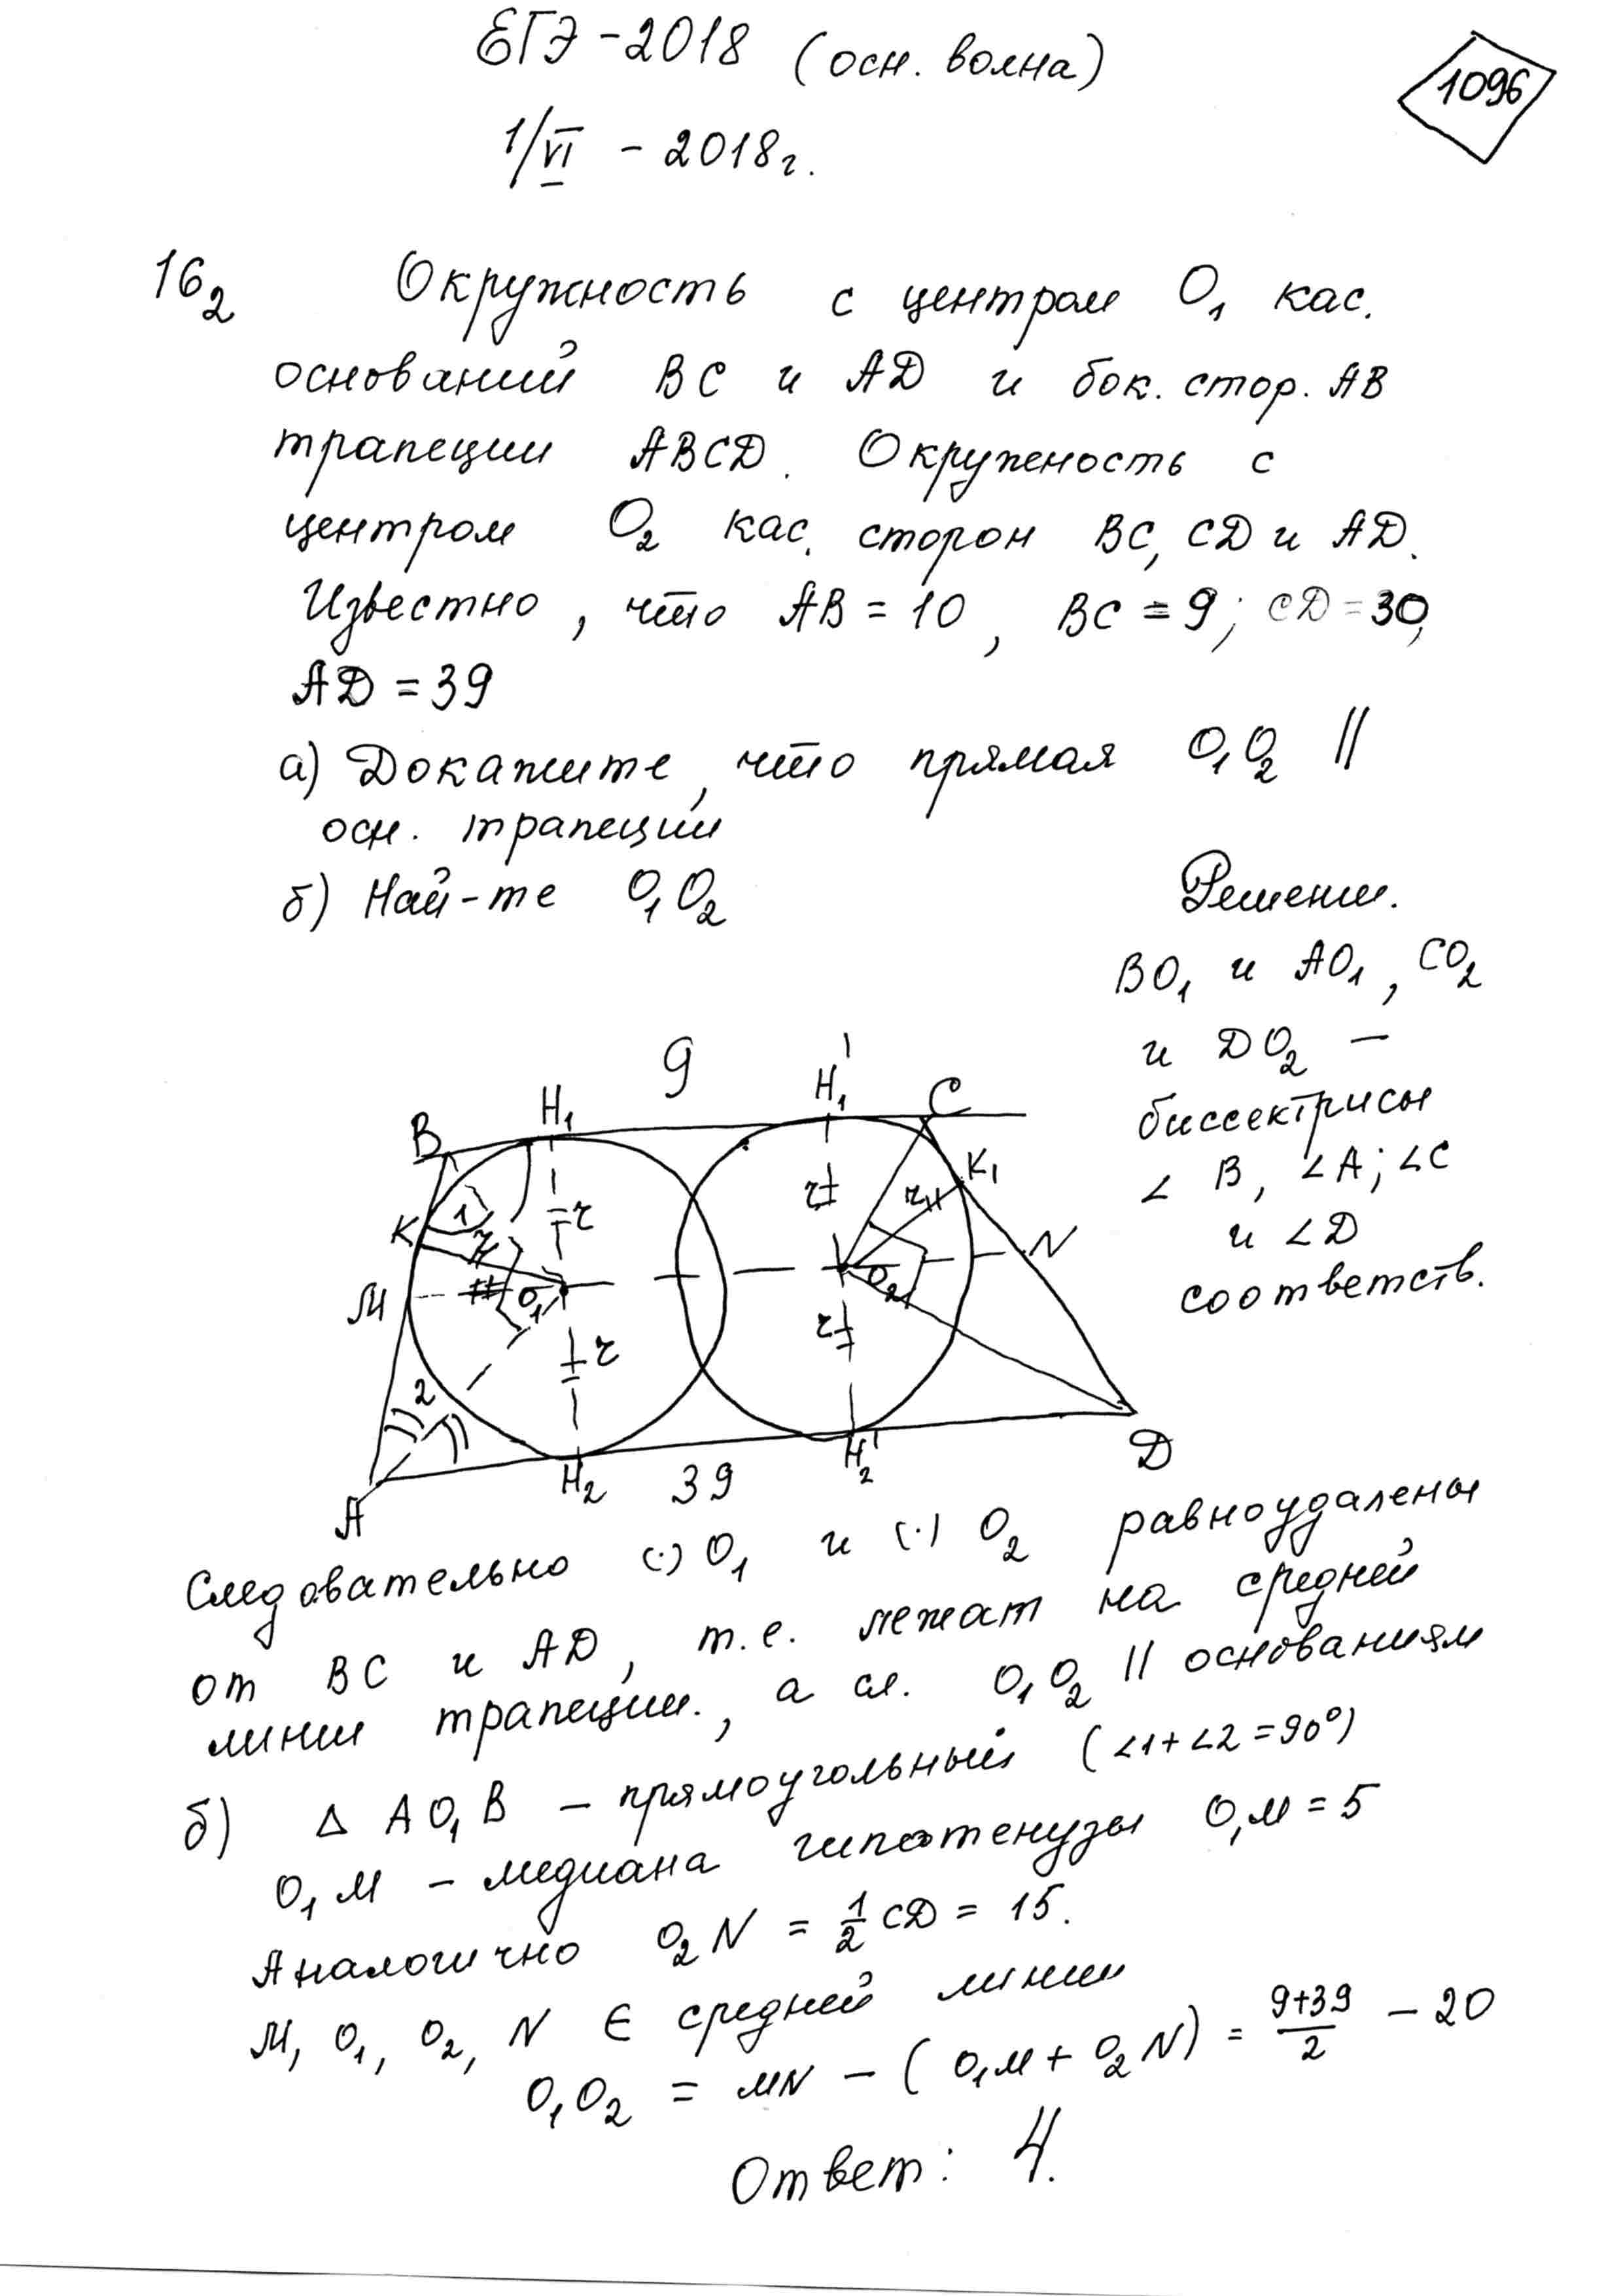 ЕГЭ-2018 (осн. волна)
1096
1/VI - 2018г.
16₂ Окружность с центром O₁ кас.
оснований BC и AD и бок. стор. AB
трапеции ABCD. Окружность с
центром O₂ кас. сторон BC, CD и AD.
Известно, что AB = 10, BC = 9; CD = 30,
AD = 39
а) Докажите, что прямая O₁O₂ ||
осн. трапеции
б) Най-те O₁O₂
Решение.
BO₁ и AO₁, CO₂
и DO₂ —
биссектрисы
∠B, ∠A; ∠C
и ∠D
соответств.
9
B H₁ H₁' C
K 1 r r r K₁
M O₁ O₂ N
r r
2
A H₂ 39 H₂' D
Следовательно (·) O₁ и (·) O₂ равноудалены
от BC и AD, т.е. лежат на средней
линии трапеции., а сл. O₁O₂ || основаниям
б) Δ AO₁B – прямоугольный (∠1+∠2=90°)
O₁M – медиана гипотенузы O₁M = 5
Аналогично O₂N = 1/2 CD = 15.
M, O₁, O₂, N ∈ средней линии
O₁O₂ = MN – (O₁M + O₂N) = (9+39)/2 – 20
Ответ: 4.